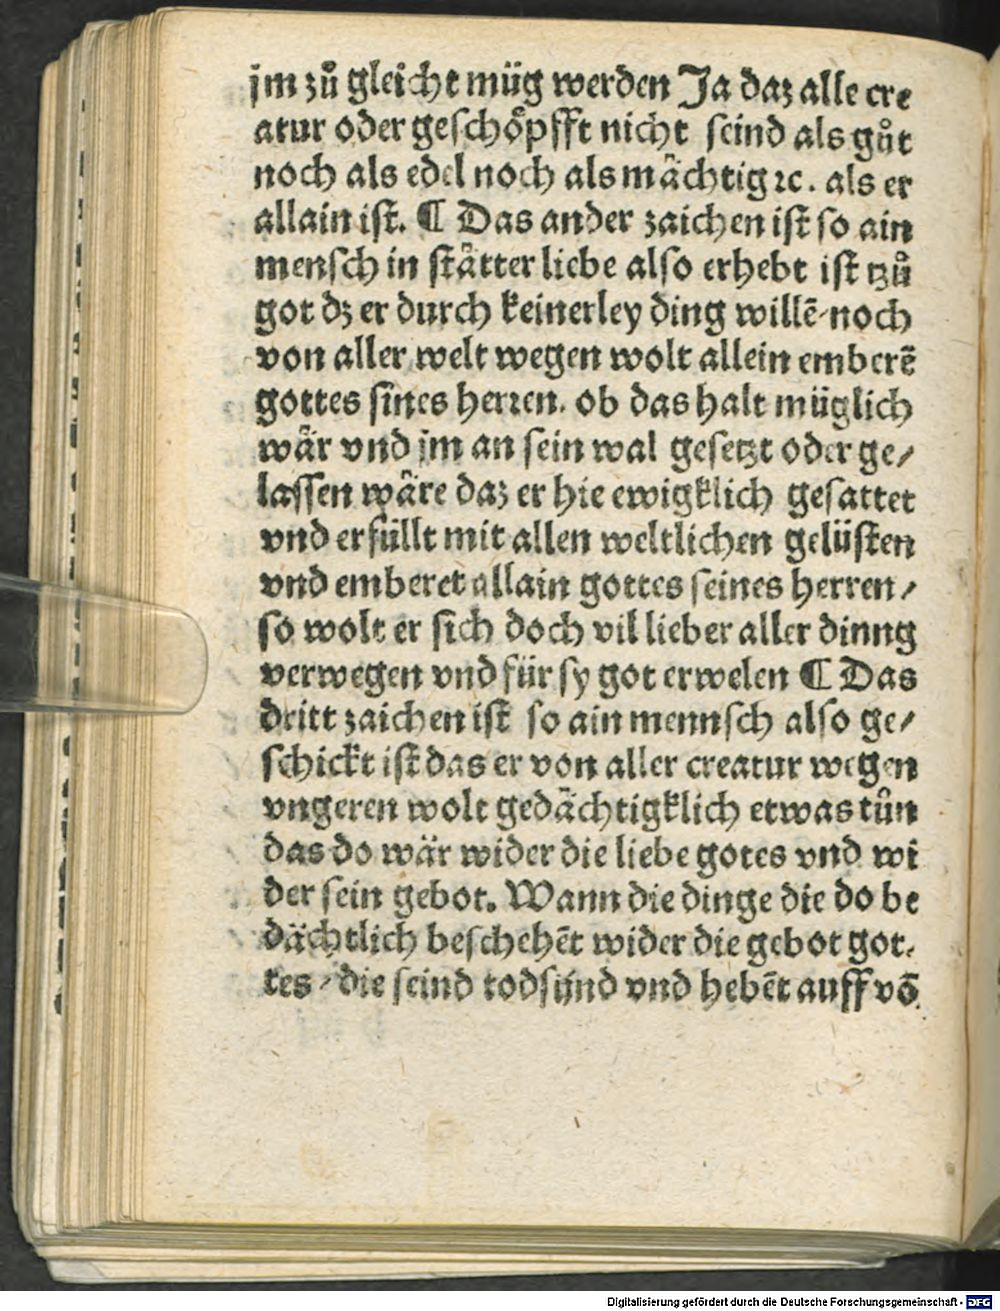 jm zů gleicht müg werden Ja daz alle cre
atur oder geschöpfft nicht seind als gůt
noch als edel noch als mächtig ⁊c. als er
allain ist. ¶ Das ander zaichen ist so ain
mensch in stätter liebe also erhebt ist tzů
got dz er durch keinerley ding willē noch
von aller welt wegen wolt allein emberē
gottes sines herren. ob das halt müglich
wär vnd jm an sein wal gesetzt oder ge/
lassen wäre daz er hie ewigklich gesattet
vnd erfüllt mit allen weltlichen gelüsten
vnd emberet allain gottes seines herren/
so wolt er sich doch vil lieber aller dinng
verwegen vnd für sy got erwelen ¶ Das
dritt zaichen ist so ain mennsch also ge/
schickt ist das er von aller creatur wegen
vngeren wolt gedächtigklich etwas tůn
das do wär wider die liebe gotes vnd wi
der sein gebot. Wann die dinge die do be
dächtlich beschehēt wider die gebot got/
tes/ die seind todsünd vnd hebēt auff vō
Digitalisierung gefördert durch die Deutsche Forschungsgemeinschaft - DFG